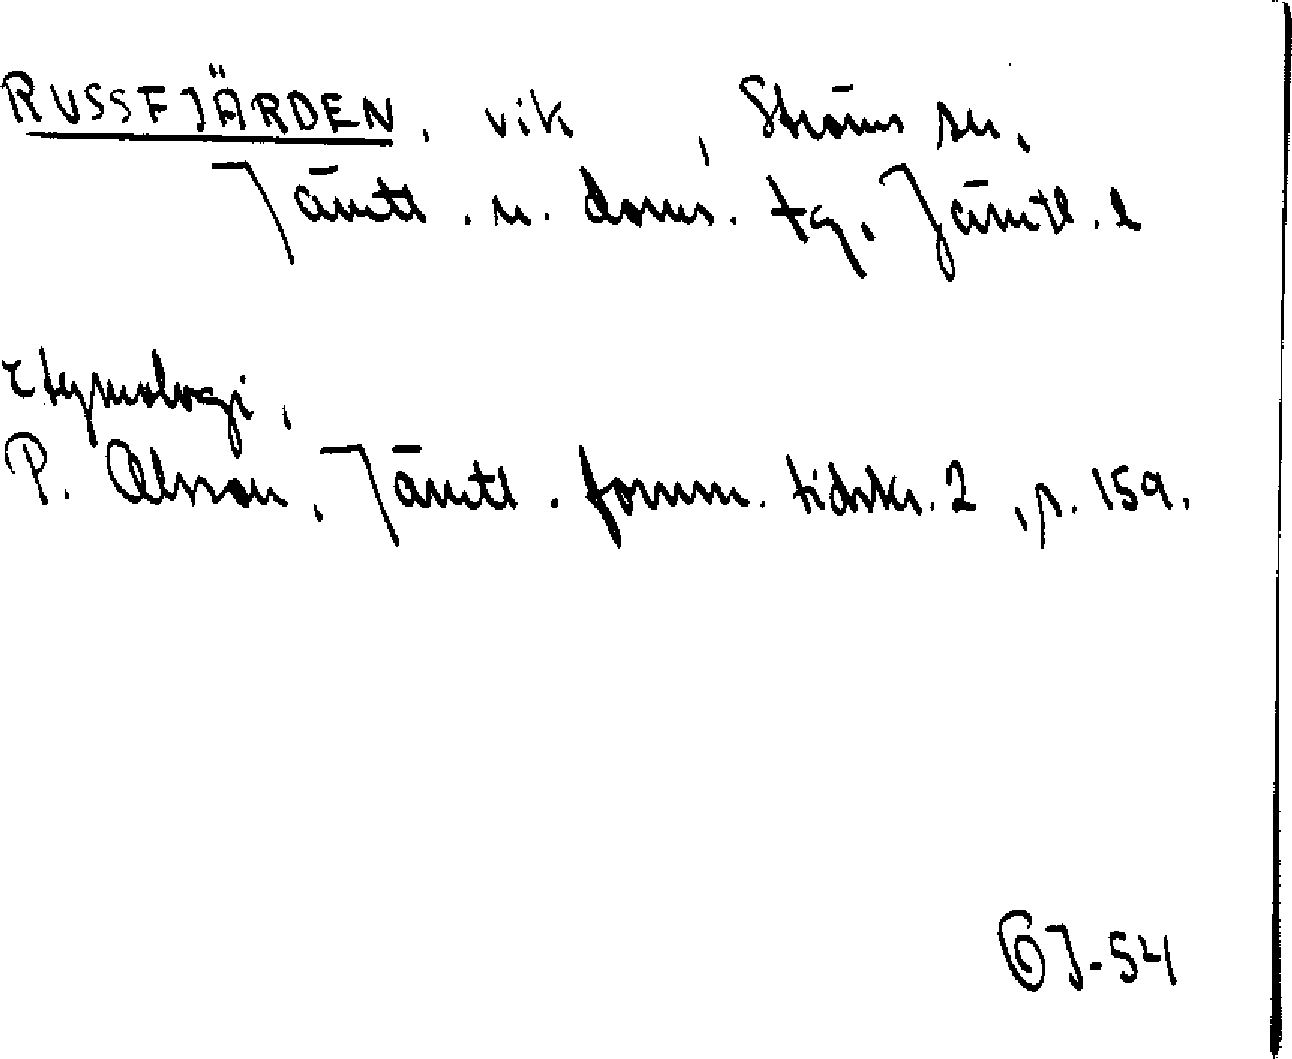 RUSSFJÄRDEN, vik, Ströms sn,
Jämtl. n. doms. tg, Jämtl. l
Etymologi,
P. Olsson, Jämtl. fornm. tidskr. 2, p. 159.
GJ-54